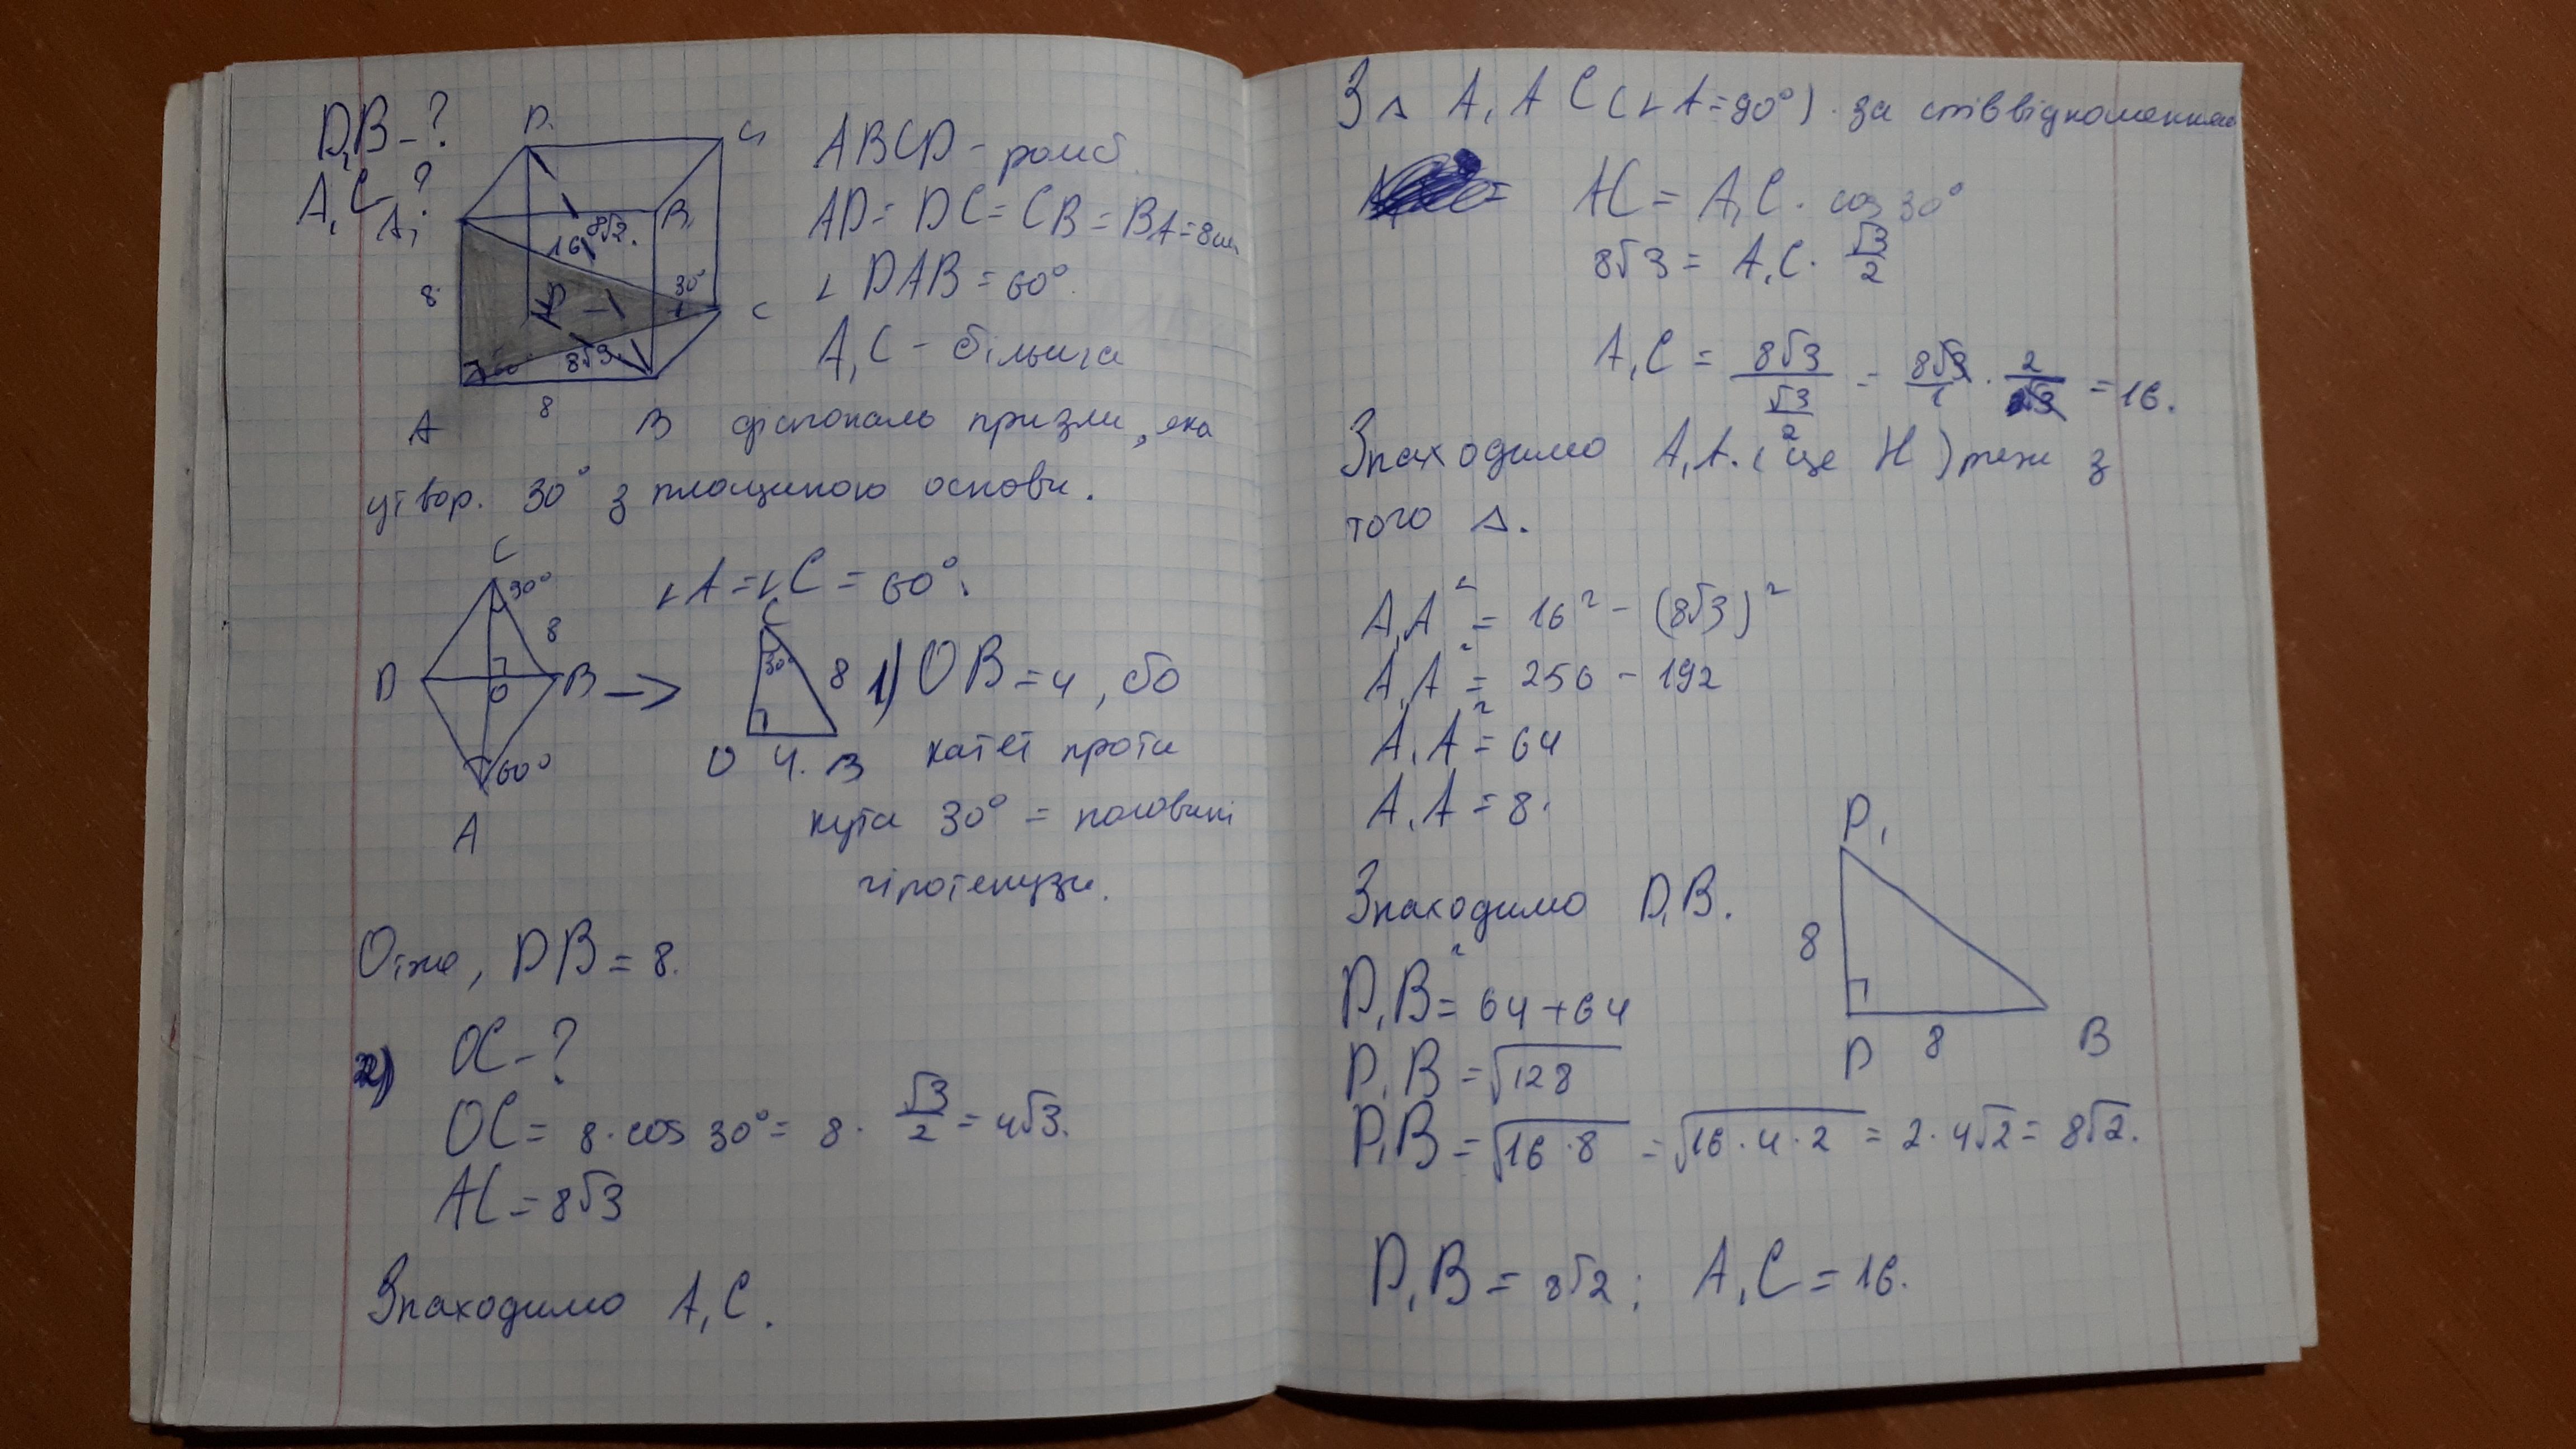 D₁B - ?
A₁C - ?
D₁
C₁
A₁
B₁
8√2.
16
30°
8
D
C
8√3.
60°
A
8
B
ABCD - ромб.
AD = DC = CB = BA = 8см
∟DAB = 60°.
A₁C - більша
діагональ призми, яка
утвор. 30° з площиною основи.
C
30°
8
D
O
B
60°
A
∟A = ∟C = 60°.
C
30°
8
O 4. B
1) OB = 4, бо
катет проти
кута 30° = половині
гіпотенузи.
Отже, DB = 8.
2) OC - ?
OC = 8 · cos 30° = 8 · √3/2 = 4√3.
AC = 8√3
Знаходимо A₁C.
З Δ A₁AC (∟A = 90°) за співвідношенням
AC = A₁C · cos 30°
8√3 = A₁C · √3/2
A₁C = 8√3/(√3/2) = 8√3/1 · 2/√3 = 16.
Знаходимо A₁A. (це H) теж з
того Δ.
A₁A² = 16² - (8√3)²
A₁A² = 256 - 192
A₁A² = 64
A₁A = 8.
Знаходимо D₁B.
D₁B² = 64 + 64
D₁B = √128
D₁B = √16·8 = √16·4·2 = 2·4√2 = 8√2.
D₁
8
D 8 B
D₁B = 8√2; A₁C = 16.